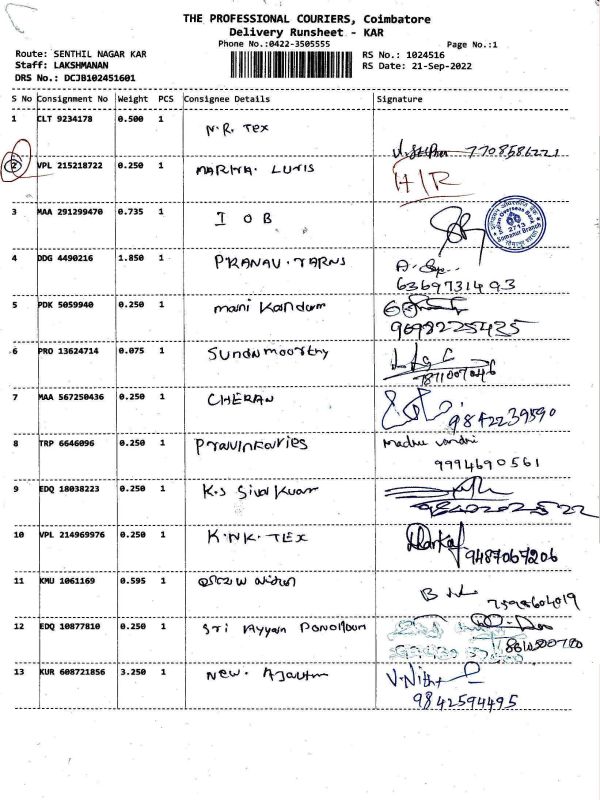 THE PROFESSIONAL COURIERS, Coimbatore
Delivery Runsheet - KAR
Phone No.:0422-3505555
Page No.:1
Route: SENTHIL NAGAR KAR
Staff: LAKSHMANAN
DRS No.: DCJB102451601
RS No.: 1024516
RS Date: 21-Sep-2022
S No Consignment No Weight PCS Consignee Details Signature
1 CLT 9234178 0.500 1 N.R. Tex
7708586221
2 VPL 215218722 0.250 1 H/R
3 MAA 291299470 0.735 1 I O B
Indian Overseas Bank
2713
Somanur Branch
4 DDG 4490216 1.850 1 PRANAV. YARNS
6369731493
5 PDK 5059940 0.250 1 mani Kandam
9698225435
6 PRO 13624714 0.075 1
7811007046
7 MAA 567250436 0.250 1 CHERAN
9842239590
8 TRP 6646096 0.250 1
9994690561
9 EDQ 18038223 0.250 1 K.S
10 VPL 214969976 0.250 1 K.NK. TEX
9487067206
11 KMU 1061169 0.595 1
7598604019
12 EDQ 10877810 0.250 1 Sri
13 KUR 608721856 3.250 1 New.
9842594495